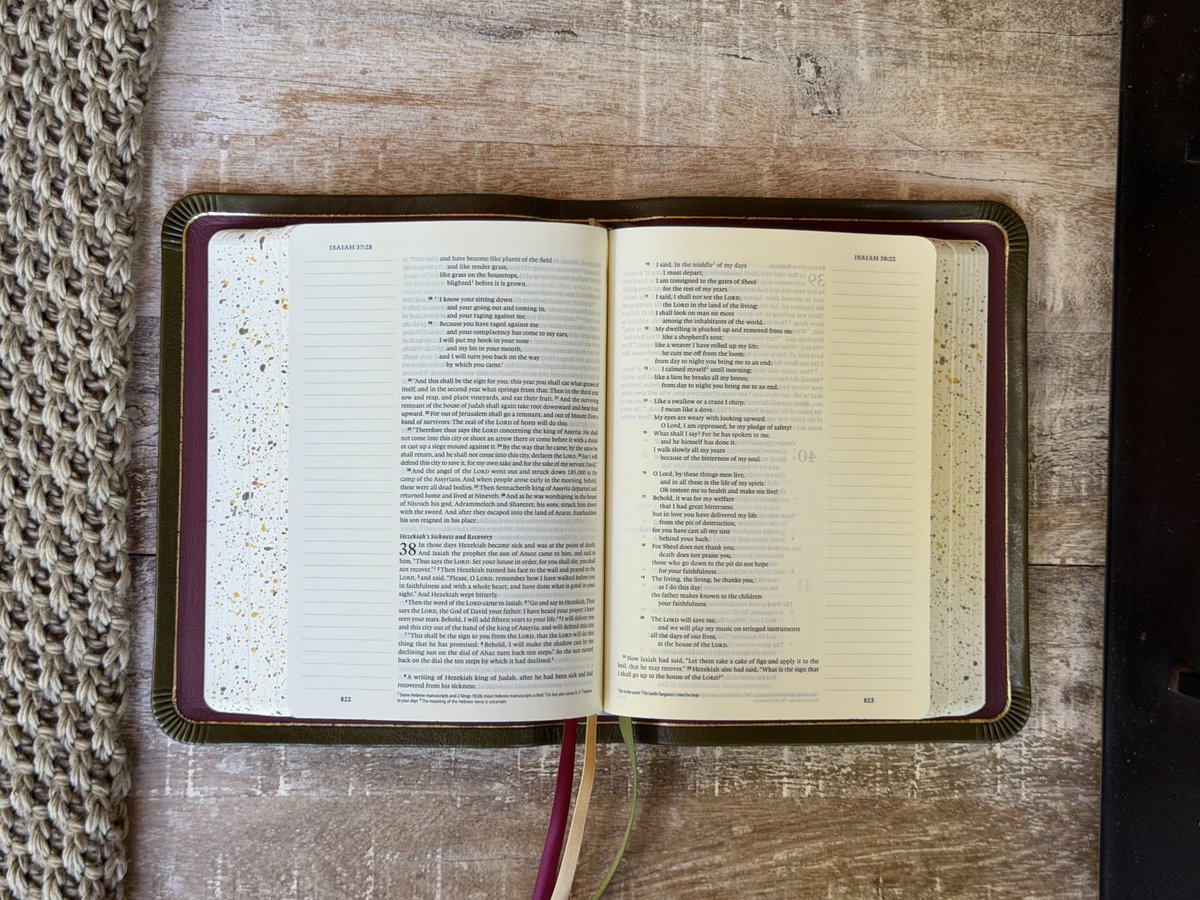 ISAIAH 37:28
and have become like plants of the field
and like tender grass,
like grass on the housetops,
blighted¹ before it is grown.
²⁸ "'I know your sitting down
and your going out and coming in,
and your raging against me.
²⁹ Because you have raged against me
and your complacency has come to my ears,
I will put my hook in your nose
and my bit in your mouth,
and I will turn you back on the way
by which you came.'
³⁰ "And this shall be the sign for you: this year you shall eat what grows of
itself, and in the second year what springs from that. Then in the third year
sow and reap, and plant vineyards, and eat their fruit. ³¹ And the surviving
remnant of the house of Judah shall again take root downward and bear fruit
upward. ³² For out of Jerusalem shall go a remnant, and out of Mount Zion a
band of survivors. The zeal of the LORD of hosts will do this.
³³ "Therefore thus says the LORD concerning the king of Assyria: He shall
not come into this city or shoot an arrow there or come before it with a shield
or cast up a siege mound against it. ³⁴ By the way that he came, by the same he
shall return, and he shall not come into this city, declares the LORD. ³⁵ For I will
defend this city to save it, for my own sake and for the sake of my servant David."
³⁶ And the angel of the LORD went out and struck down 185,000 in the
camp of the Assyrians. And when people arose early in the morning, behold,
these were all dead bodies. ³⁷ Then Sennacherib king of Assyria departed and
returned home and lived at Nineveh. ³⁸ And as he was worshiping in the house
of Nisroch his god, Adrammelech and Sharezer, his sons, struck him down
with the sword. And after they escaped into the land of Ararat, Esarhaddon
his son reigned in his place.
Hezekiah's Sickness and Recovery
38 In those days Hezekiah became sick and was at the point of death.
And Isaiah the prophet the son of Amoz came to him, and said to
him, "Thus says the LORD: Set your house in order, for you shall die, you shall
not recover."¹ ² Then Hezekiah turned his face to the wall and prayed to the
LORD, ³ and said, "Please, O LORD, remember how I have walked before you
in faithfulness and with a whole heart, and have done what is good in your
sight." And Hezekiah wept bitterly.
⁴ Then the word of the LORD came to Isaiah: ⁵ "Go and say to Hezekiah, Thus
says the LORD, the God of David your father: I have heard your prayer; I have
seen your tears. Behold, I will add fifteen years to your life.¹ ⁶ I will deliver you
and this city out of the hand of the king of Assyria, and will defend this city.
⁷ "This shall be the sign to you from the LORD, that the LORD will do this
thing that he has promised: ⁸ Behold, I will make the shadow cast by the
declining sun on the dial of Ahaz turn back ten steps." So the sun turned
back on the dial the ten steps by which it had declined.⁴
⁹ A writing of Hezekiah king of Judah, after he had been sick and had
recovered from his sickness:
¹ Some Hebrew manuscripts and 2 Kings 19:26; most Hebrew manuscripts a field ² Or live; also verses 9, 21 ³ Hebrew
to your days ⁴ The meaning of the Hebrew verse is uncertain
822
ISAIAH 38:22
¹⁰ I said, In the middle¹ of my days
I must depart;
I am consigned to the gates of Sheol
for the rest of my years.
¹¹ I said, I shall not see the LORD,
the LORD in the land of the living;
I shall look on man no more
among the inhabitants of the world.
¹² My dwelling is plucked up and removed from me
like a shepherd's tent;
like a weaver I have rolled up my life;
he cuts me off from the loom;
from day to night you bring me to an end;
¹³ I calmed myself² until morning;
like a lion he breaks all my bones;
from day to night you bring me to an end.
¹⁴ Like a swallow or a crane I chirp;
I moan like a dove.
My eyes are weary with looking upward.
O Lord, I am oppressed; be my pledge of safety!
¹⁵ What shall I say? For he has spoken to me,
and he himself has done it.
I walk slowly all my years
because of the bitterness of my soul.
¹⁶ O Lord, by these things men live,
and in all these is the life of my spirit.
Oh restore me to health and make me live!
¹⁷ Behold, it was for my welfare
that I had great bitterness;
but in love you have delivered my life
from the pit of destruction,
for you have cast all my sins
behind your back.
¹⁸ For Sheol does not thank you;
death does not praise you;
those who go down to the pit do not hope
for your faithfulness.
¹⁹ The living, the living, he thanks you,
as I do this day;
the father makes known to the children
your faithfulness.
²⁰ The LORD will save me,
and we will play my music on stringed instruments
all the days of our lives,
at the house of the LORD.
²¹ Now Isaiah had said, "Let them take a cake of figs and apply it to the
boil, that he may recover." ²² Hezekiah also had said, "What is the sign that
I shall go up to the house of the LORD?"
¹ Or In the quiet ² Or (with Targum) I cried for help
823